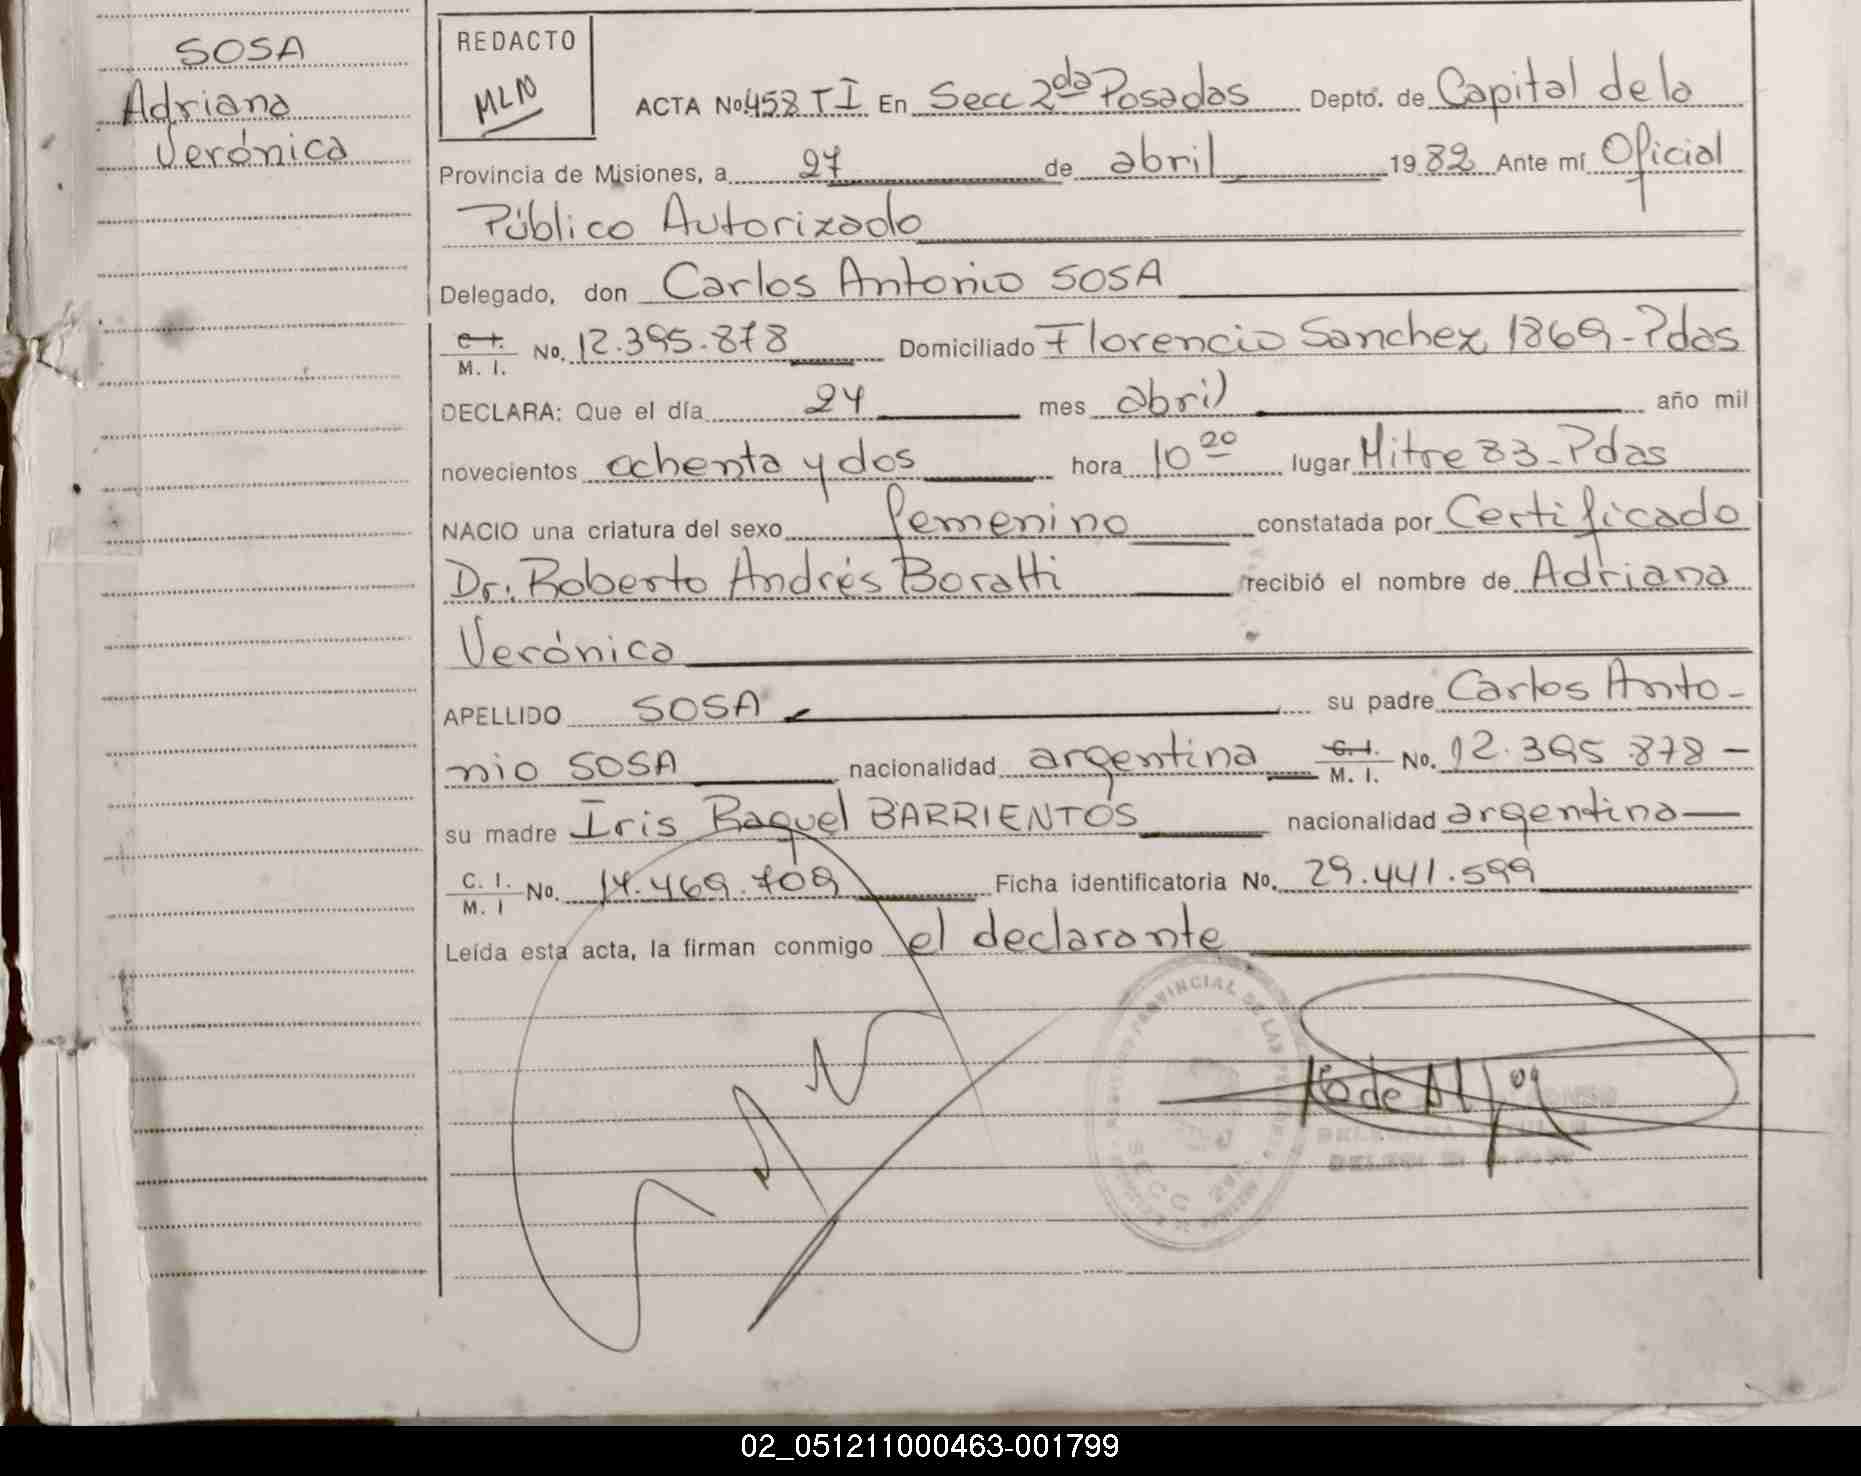 SOSA
Adriana
Verónica
REDACTO
MLN
ACTA No. 458 TI En Secc 2da Posadas Depto. de Capital de la
Provincia de Misiones, a 27 de abril 1982 Ante mí Oficial
Público Autorizado
Delegado, don Carlos Antonio SOSA
C. I.
M. I. No. 12.395.878 Domiciliado Florencio Sanchez 1869-Pdas
DECLARA: Que el día 24 mes abril año mil
novecientos ochenta y dos hora 10 20 lugar Mitre 83-Pdas
NACIO una criatura del sexo femenino constatada por Certificado
Dr. Roberto Andrés Boratti recibió el nombre de Adriana
Verónica
APELLIDO SOSA su padre Carlos Anto-
nio SOSA nacionalidad argentina C. I. M. I. No. 12.395.878-
su madre Iris Raquel BARRIENTOS nacionalidad argentina
C. I.
M. I No. 14.469.709 Ficha identificatoria No. 29.441.599
Leída esta acta, la firman conmigo el declarante
PROVINCIAL DE LAS
SECC 2da
DELEGADA TITULAR
02_051211000463-001799